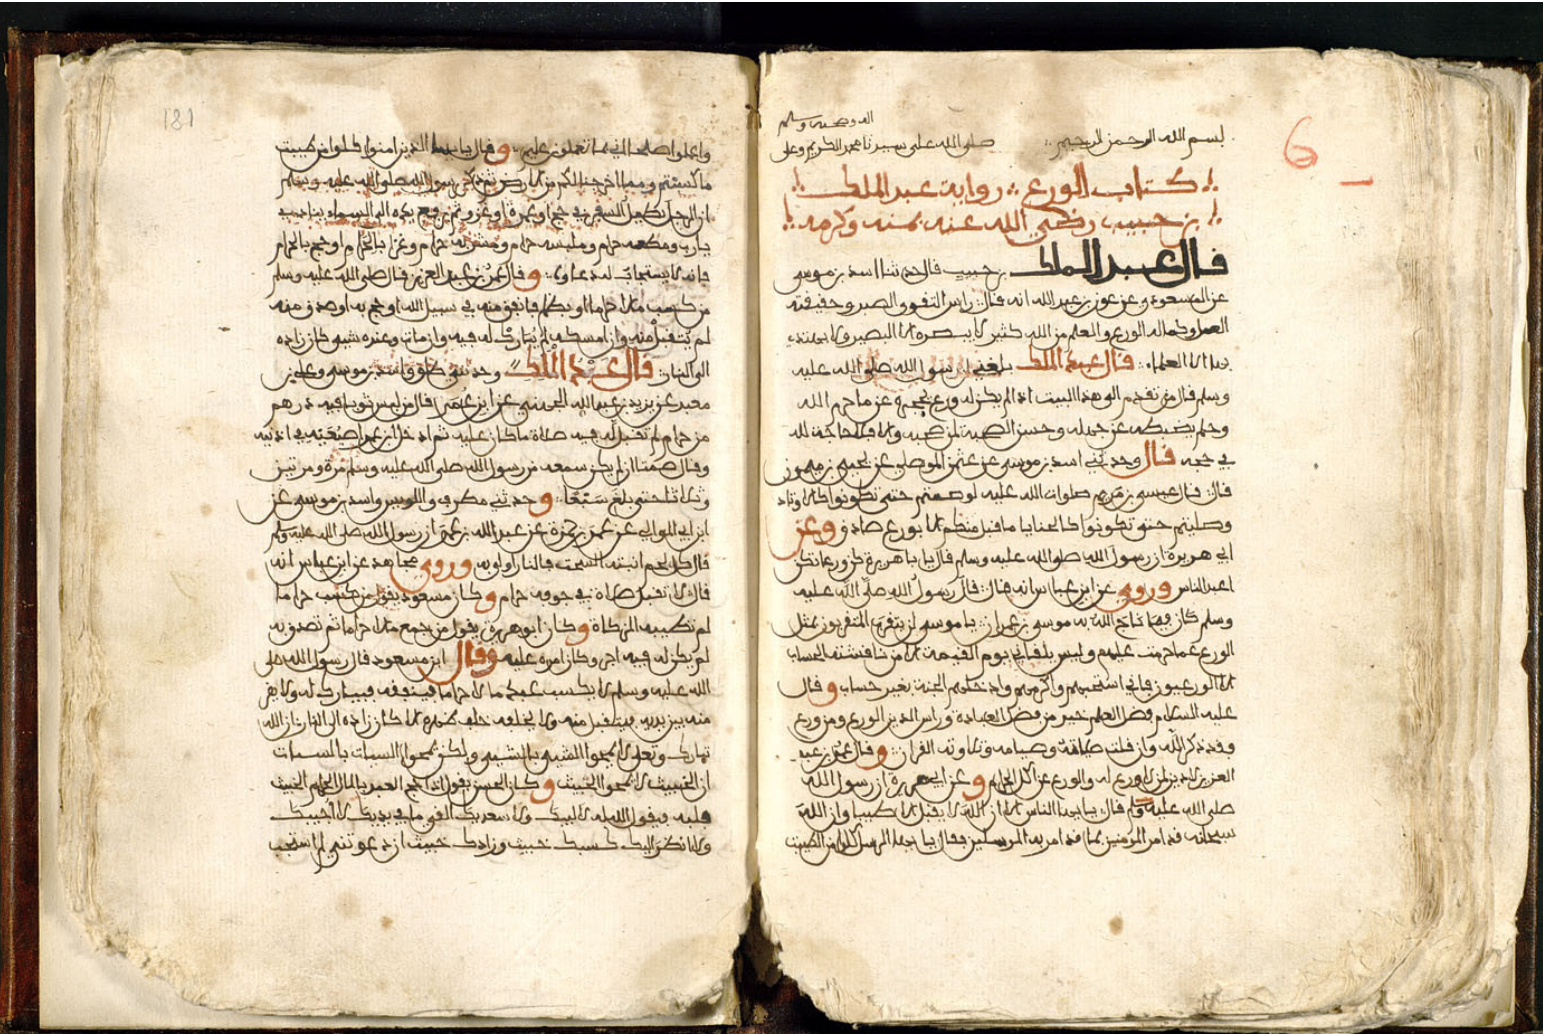 بسم الله الرحمن الرحيم صلى الله على سيدنا محمد الكريم وعلى
اله وصحبه وسلم
كتاب الورع رواية عبد الملك
بن حبيب رضي الله عنه بمنه وكرمه
قال عبد الملك بن حبيب قال حدثنا اسد بن موسى
عن المسعودي عن عون بن عبد الله انه قال راس التقوى الصبر وحقيقته
العمل وكماله الورع والعلم من الله كثير لا يبصره الا البصير ولا يهتدي
الا العلماء قال عبد الملك بلغني ان رسول الله صلى الله عليه
وسلم قال من تقدم الى هذا البيت اذا لم يكن له ورع يحجزه عن ما حرم الله
وحلم يضبطه عن جهله وحسن الصحبة لمن صحبه والا فلا حاجة لله
في حجه قال وحدثني اسد بن موسى عن عثمن الموصلي عن يحيى بن ميمون
قال قال عيسى بن مريم صلوات الله عليه لو صمتم حتى تكونوا كالاوتاد
وصليتم حتى تكونوا كالحنايا ما قبل منكم الا بورع صادق وعن
ابي هريرة ان رسول الله صلى الله عليه وسلم قال يا با هريرة كن ورعا تكن
اعبد الناس وروي عن ابن عباس انه قال قال رسول الله صلى الله عليه
وسلم كان فيما ناجى الله به موسى بن عمران يا موسى لن يتقرب المتقربون بمثل
الورع عما حرمت عليهم وليس يلقاني يوم القيمة الا من ناقشته الحساب
الا الورعيون فاني استحييهم واكرمهم وادخلهم الجنة بغير حساب وقال
عليه السلام فضل العلم خير من فضل العبادة وراس الدين الورع ومن ورع
فقد ذكر الله وان قلت صلاته وصيامه وتلاوته القران وقال عمر بن عبد
العزيز لا دين لمن لا ورع له والورع عن اكل الحرام وعن ابي هريرة ان رسول الله
صلى الله عليه وسلم قال يايها الناس الا ان الله لا يقبل الا طيبا وان الله
سبحانه قد امر المومنين بما قد امر به المرسلين فقال يا يها الرسل كلوا من الطيبت
واعملوا صلحا اني بما تعملون عليم وقال يا يها الذين امنوا كلوا من طيبت
ما كسبتم ومما اخرجنا لكم من الارض ثم ذكر رسول الله صلى الله عليه وسلم
ان الرجل يطيل السفر في حج او عمرة او غزو ثم يرفع يده الى السماء ينادي
يارب ومطعمه حرام وملبسه حرام ومشربه حرام وغزا بالحرام او حج بالحرام
فانه لا يستجاب له دعاوه وقال عمر بن عبد العزيز قال صلى الله عليه وسلم
من كسب مالا حراما فانفق منه في سبيل الله او حج به او صدق منه
لم يتقبل منه وان امسكه لم يبارك له فيه وان مات وعنده شيء كان زاده
الى النار قال عبد الملك وحدثني وعلي بن
معبد عن يزيد بن عبد الله الجهني عن ابن عمر قال من لبس ثوبا فيه درهم
من حرام لم تقبل له فيه صلاة ما كان عليه ثم ادخل ابن عمر اصبعيه في اذنيه
وقال صمتا ان لم يكن سمعه من رسول الله صلى الله عليه وسلم مرة ومرتين
وثلاثا حتى بلغ سبعا وحدثني مطرف والاويس واسد بن موسى عن
ابن ابي الموالي عن عمر بن حمزة عن عبد الله بن عمر ان رسول الله صلى الله عليه وسلم
قال كل لحم انبته السحت فالنار اولى به وروي مجاهد عن ابن عباس انه
قال لا تقبل صلاة في جوفه حرام وكان مسعود يقول من كسب حراما
لم تطيبه الزكاة وكان ابو هريرة يقول من جمع مالا حراما ثم تصدق به
لم يكن له فيه اجر وكان اصره عليه وقال ابن مسعود قال رسول الله صلى
الله عليه وسلم لا يكسب عبد مالا حراما فينفقه فيبارك له ولا
منه بين يديه فيتقبل منه ولا يخلفه خلف ظهره الا كان زاده الى النار ان الله
تبارك وتعلى لا يمحوا السيء بالسيء ولكن يمحوا السيات بالحسنات
ان الخبيث لا يمحوا الخبيث وكان الحسن يقول اذا حج العبد بالمال الحرام الخبيث
فلبى فيقول الله له لا لبيك ولا سعديك الق ما في يديك لا اجيبك
ولا انظر اليك كسبك خبيث وزادك خبيث ان دعوتني لم استجب
181
6